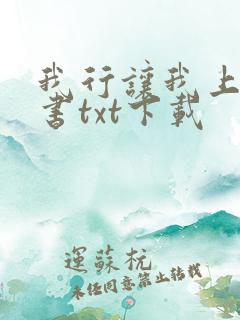 我行讓我上
書txt下載
運蘇杭
未任同意禁止转载